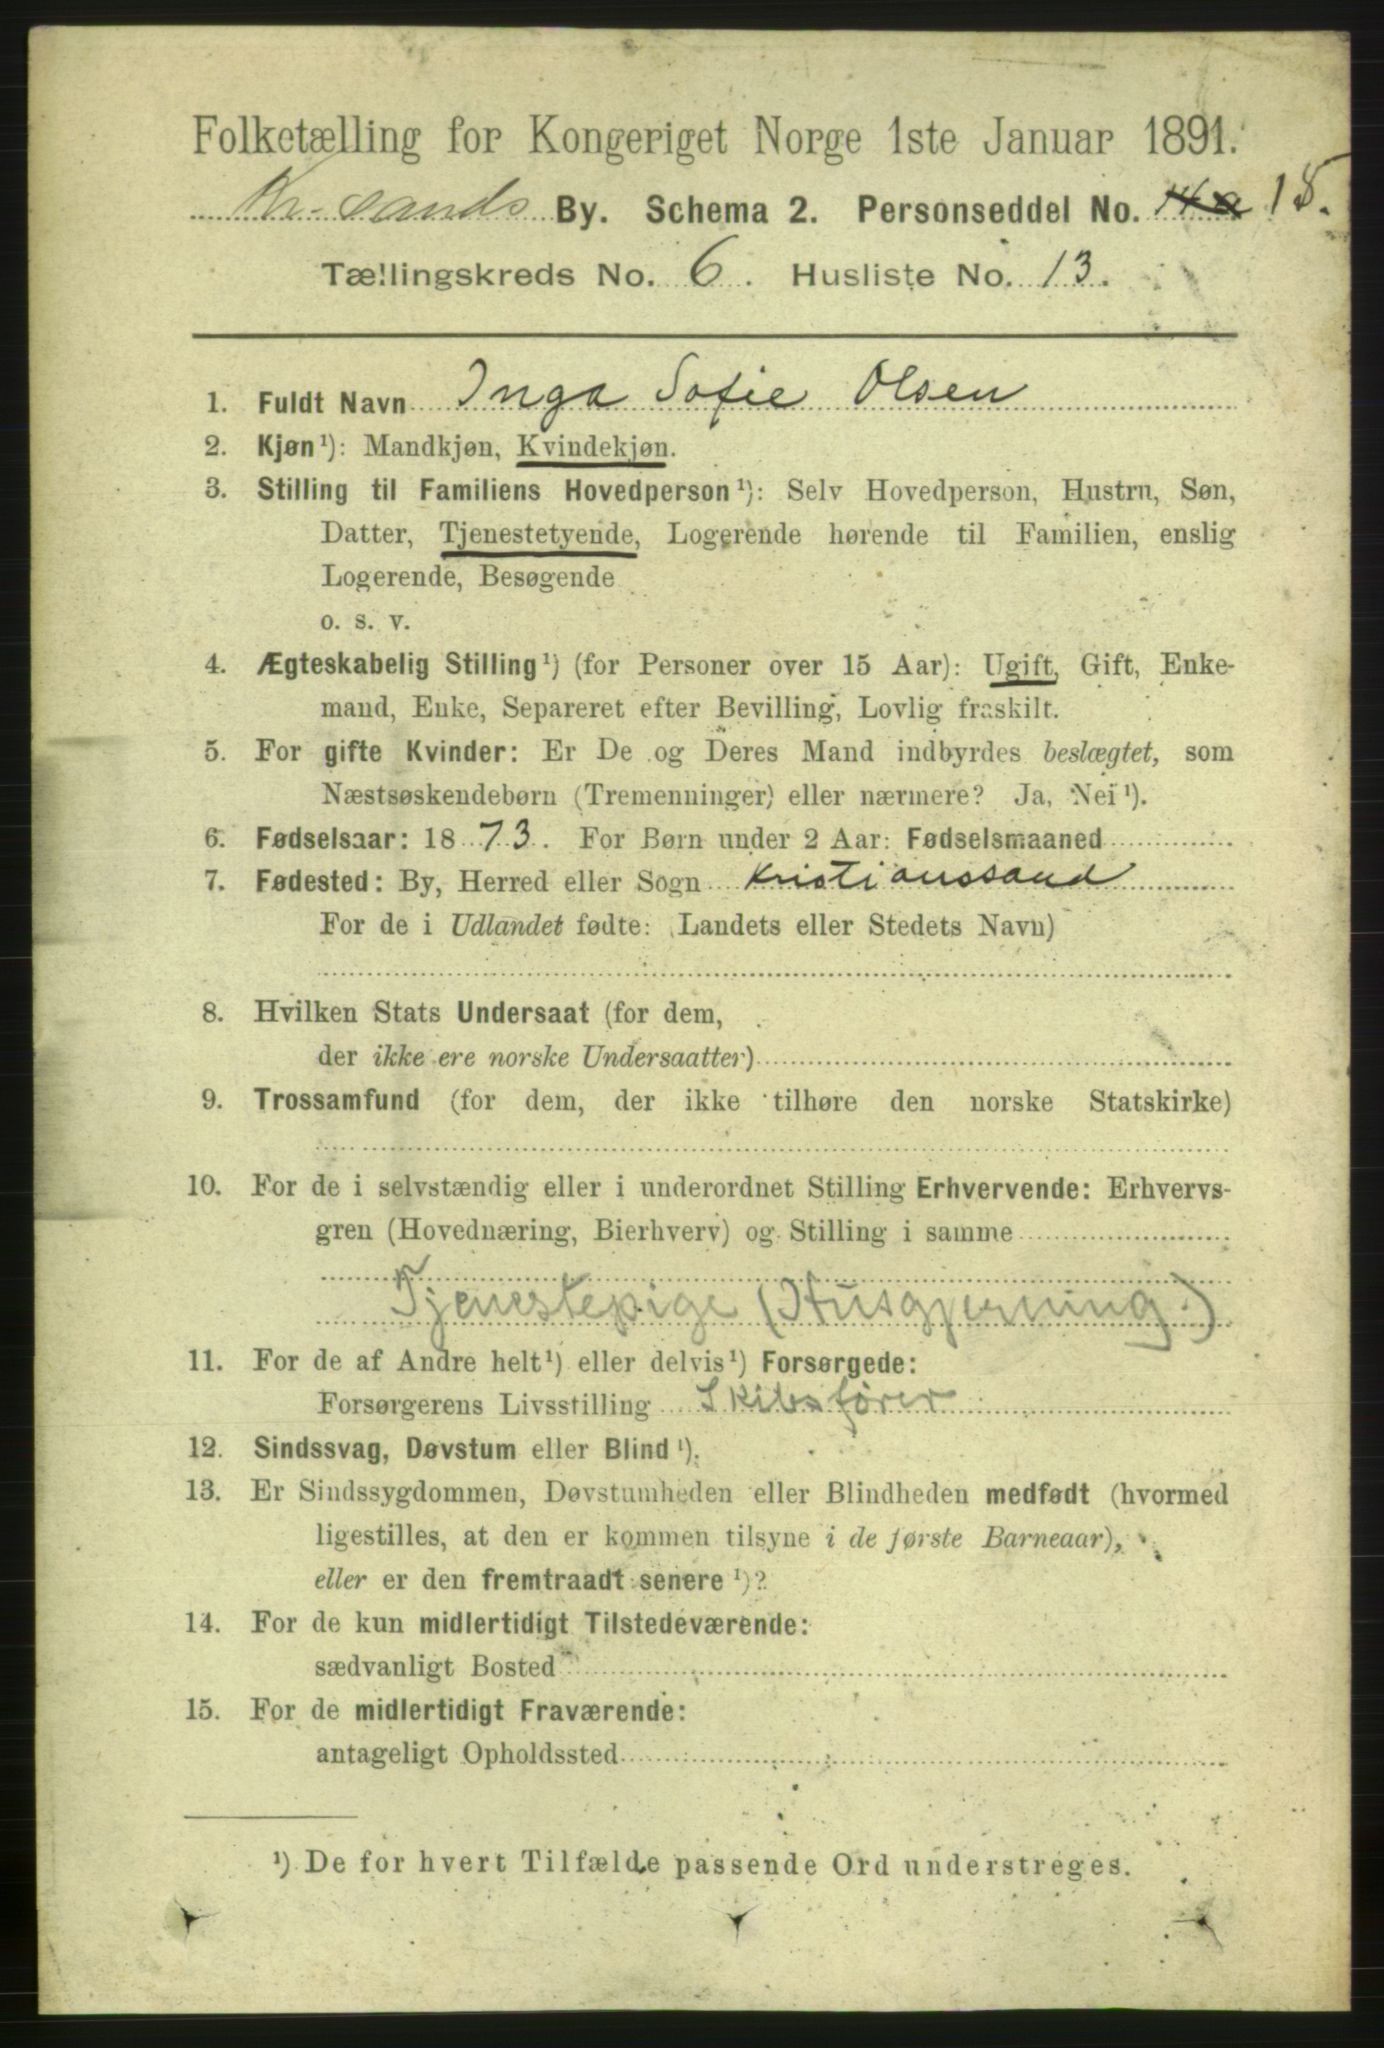 Folketælling for Kongeriget Norge 1ste Januar 1891.
Kr.sands By. Schema 2. Personseddel No. 15.
Tællingskreds No. 6. Husliste No. 13.
1. Fuldt Navn Inga Sofie Olsen
2. Kjøn¹): Mandkjøn, Kvindekjøn.
3. Stilling til Familiens Hovedperson¹): Selv Hovedperson, Hustru, Søn,
Datter, Tjenestetyende, Logerende hørende til Familien, enslig
Logerende, Besøgende
o. s. v.
4. Ægteskabelig Stilling¹) (for Personer over 15 Aar): Ugift, Gift, Enke-
mand, Enke, Separeret efter Bevilling, Lovlig fraskilt.
5. For gifte Kvinder: Er De og Deres Mand indbyrdes beslægtet, som
Næstsøskendebørn (Tremenninger) eller nærmere? Ja, Nei¹).
6. Fødselsaar: 1873. For Børn under 2 Aar: Fødselsmaaned
7. Fødested: By, Herred eller Sogn Kristianssand
For de i Udlandet fødte: Landets eller Stedets Navn)
8. Hvilken Stats Undersaat (for dem,
der ikke ere norske Undersaatter)
9. Trossamfund (for dem, der ikke tilhøre den norske Statskirke)
10. For de i selvstændig eller i underordnet Stilling Erhvervende: Erhvervs-
gren (Hovednæring, Bierhverv) og Stilling i samme
Tjenestepige (Husgjerning)
11. For de af Andre helt¹) eller delvis¹) Forsørgede:
Forsørgerens Livsstilling Skibsfører
12. Sindssvag, Døvstum eller Blind¹).
13. Er Sindssygdommen, Døvstumheden eller Blindheden medfødt (hvormed
ligestilles, at den er kommen tilsyne i de første Barneaar),
eller er den fremtraadt senere¹)?
14. For de kun midlertidigt Tilstedeværende:
sædvanligt Bosted
15. For de midlertidigt Fraværende:
antageligt Opholdssted
¹) De for hvert Tilfælde passende Ord understreges.